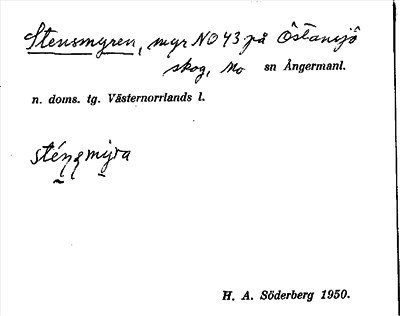 Stensmyren, myr NO 43 på Östansjö
skog, Mo sn Ångermanl.
n. doms. tg. Västernorrlands l.
sténsmyra
H. A. Söderberg 1950.